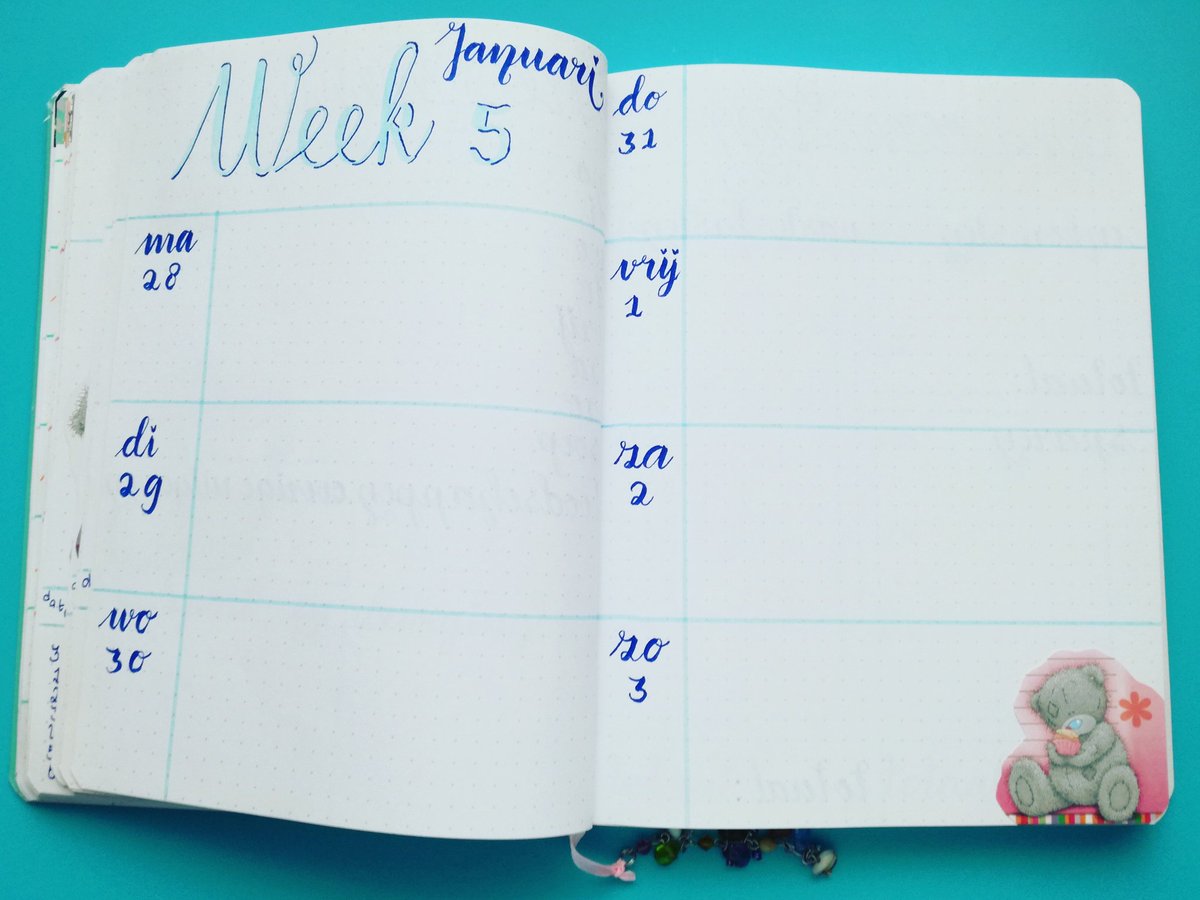 Januari
Week 5
ma
28
di
29
wo
30
do
31
vrij
1
za
2
zo
3